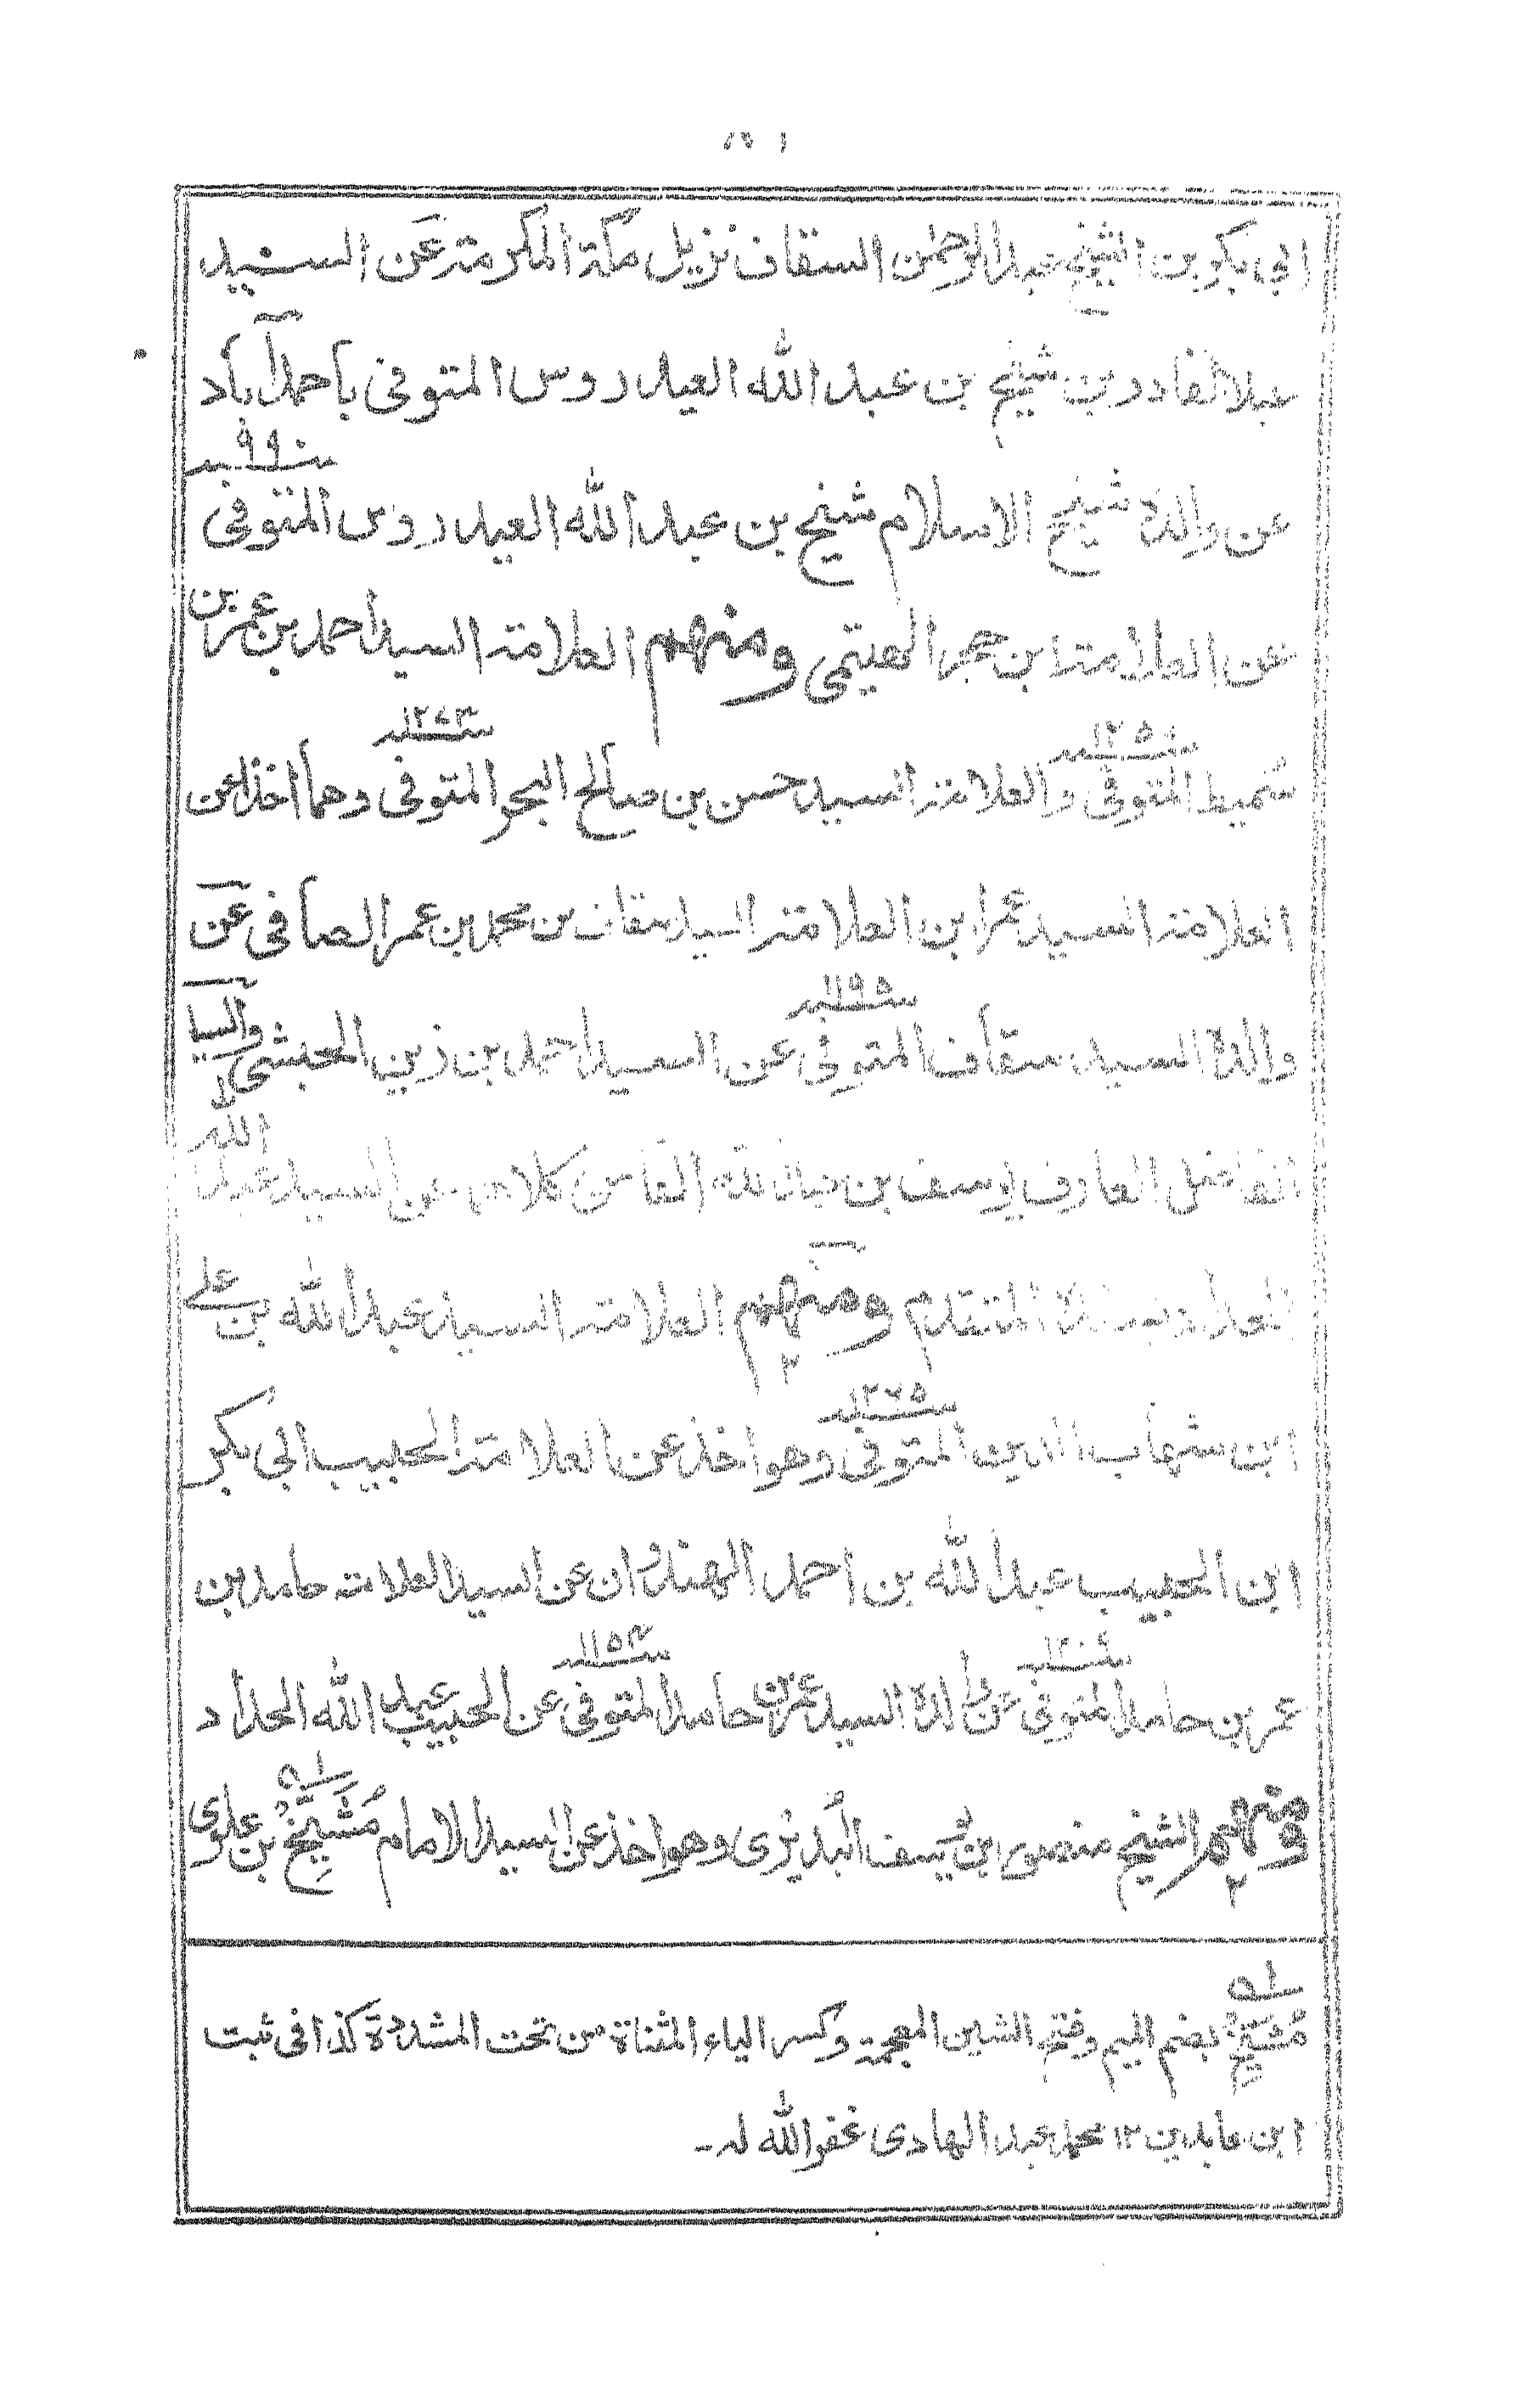 ابي بكر بن الشيخ عبد الرحمٰن السقاف نزيل مكة المكرمة عن السيد
عبد القادر بن شيخ بن عبد الله العيدروس المتوفى بأحمد آباد
سنة ٩٩٠
عن والدة شيخ الاسلام شيخ بن عبد الله العيدروس المتوفى
عن العلامة ابن حجر الهيتمي ومنهم العلامة السيد احمد بن عمر بن
سنة ١٢٥٠ سنة ١٢٧٣
سُميط المتوفى والعلامة السيد حسن بن صالح البحر المتوفى وهما اخذا عن
العلامة السيد عمر ابن العلامة السيد سقاف بن محمد بن عمر الصافى عن
سنة ١١٩٥
والدة السيد سقاف المتوفى عن السيد احمد بن زين الحبشى والسيد
الفاضل العارف يوسف بن عن السيد عبد الله
المتقدم ومنهم العلامة السيد عبد الله بن على
سنة ١٢٦٥
ابن شهاب الدين المتوفى وهو اخذ عن العلامة الحبيب ابى بكر
ابن الحبيب عبد الله بن احمد الهندوان عن السيد العلامة حامد بن
سنة ١١٥٣
عمر بن حامد المتوفى عن والدة السيد عمر بن حامد المتوفى عن الحبيب عبد الله الحداد
ومنهم الشيخ منصور ابن يُوسف البُديْرى وهو اخذ عن السيد الامام مُشَيِّخ بن علوى
مُشَيِّخ بضم الميم وفتح الشين المعجمة وكسر الياء المثناة من تحت المشددة كذا فى ثبت
ابن عابدين ١٢ محمد عبد الهادى غفر الله له ـ